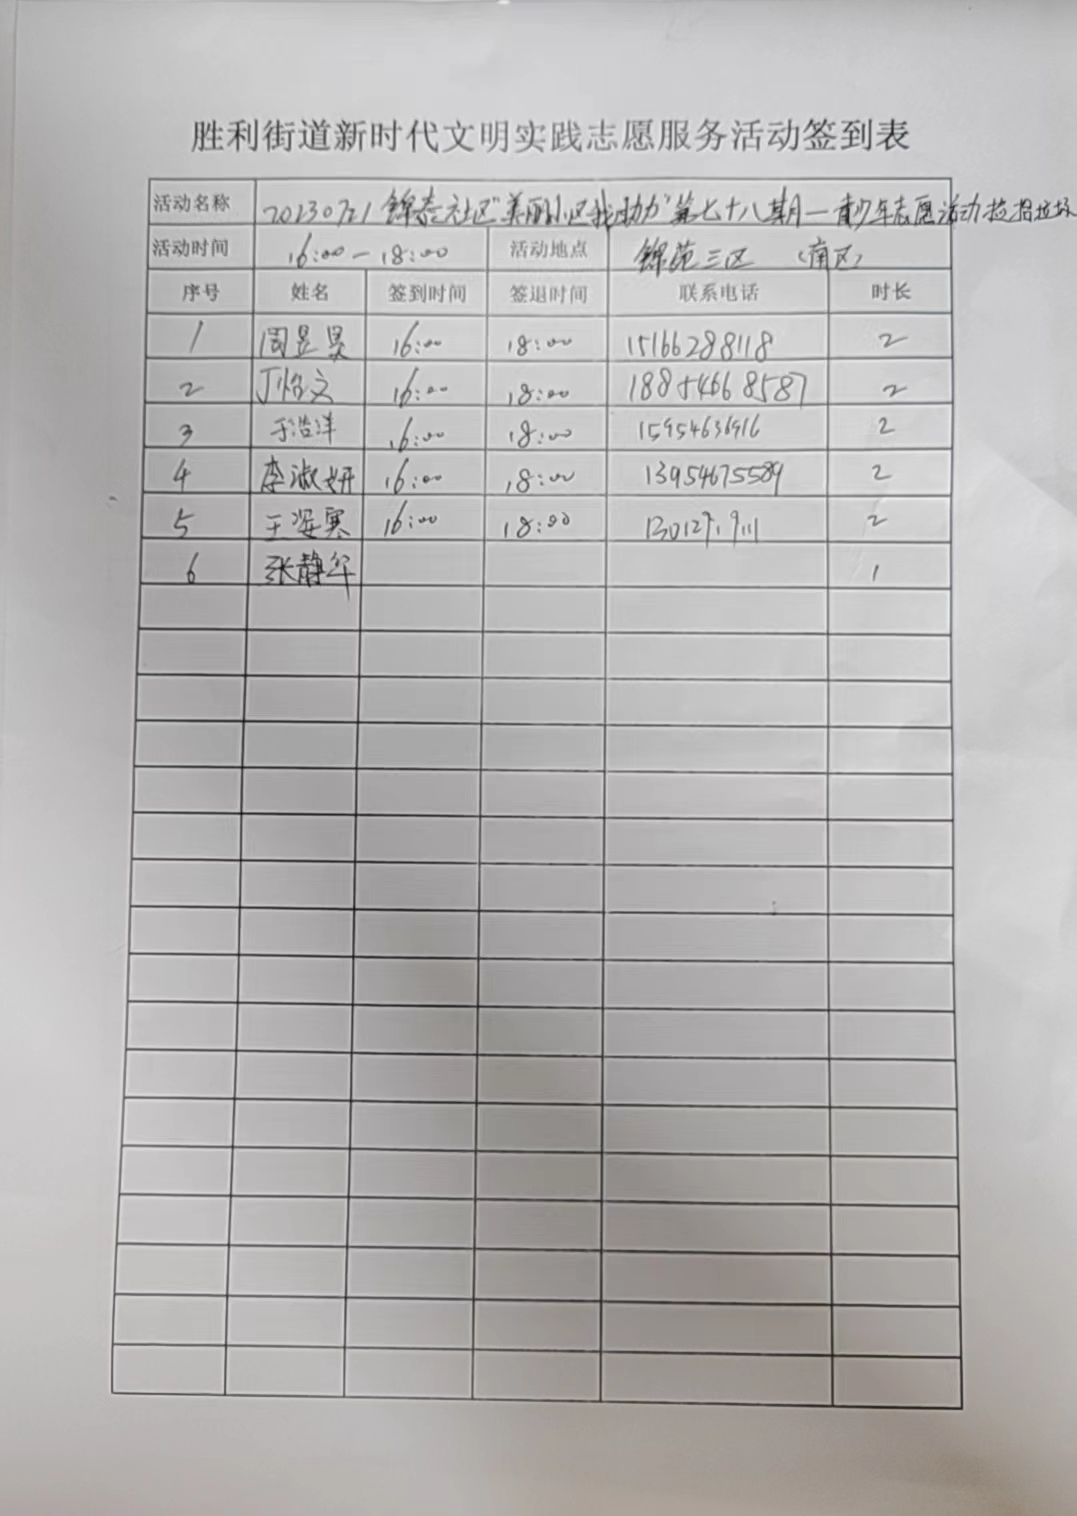 胜利街道新时代文明实践志愿服务活动签到表
活动名称 20230721 锦春社区"美丽小区我助力"第七十八期—青少年志愿活动捡拾垃圾
活动时间 16:00-18:00 活动地点 锦苑三区 (南区)
序号 姓名 签到时间 签退时间 联系电话 时长
1 周昱昊 16:00 18:00 15166288118 2
2 丁怡文 16:00 18:00 18854668587 2
3 于浩洋 16:00 18:00 15954636916 2
4 李淑妍 16:00 18:00 13954675589 2
5 王姿寒 16:00 18:00 2
6 张静华 1